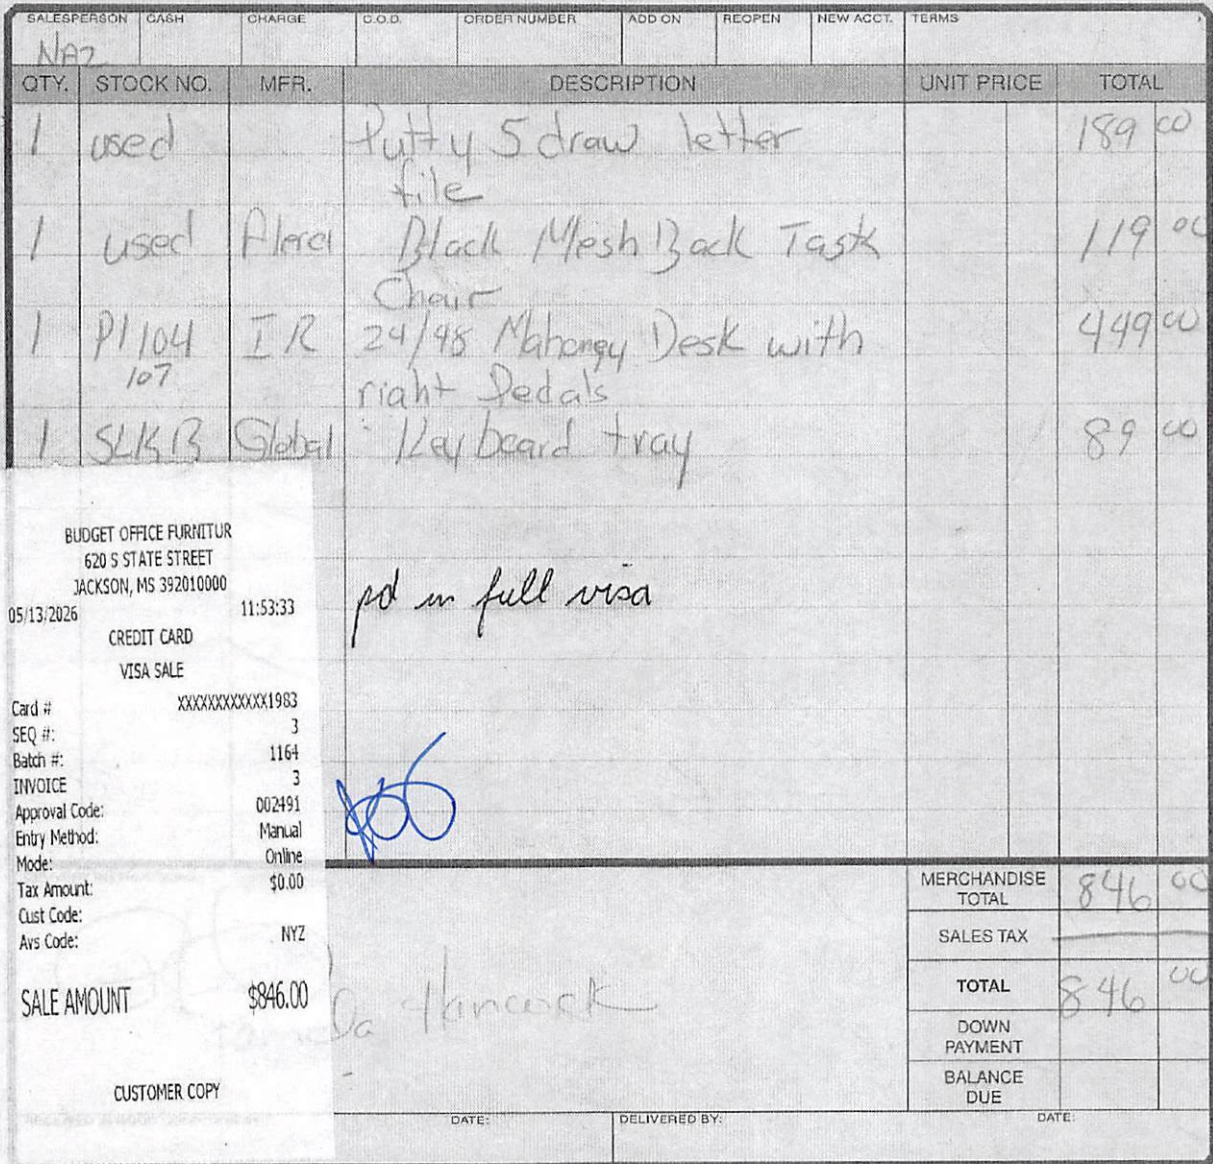 SALESPERSON CASH CHARGE C.O.D. ORDER NUMBER ADD ON REOPEN NEW ACCT. TERMS
NAZ
QTY. STOCK NO. MFR. DESCRIPTION UNIT PRICE TOTAL
1 used Putty 5 draw letter 189 00
file
1 used Black Mesh Back Task 119 00
Chair
1 P1104 I R 24/48 Mahongy Desk with 449 00
107 right Pedals
1 SLKB Global Keyboard tray 89 00
BUDGET OFFICE FURNITUR
620 S STATE STREET
JACKSON, MS 392010000
05/13/2026 11:53:33
CREDIT CARD
VISA SALE
Card # XXXXXXXXXXXX1983
SEQ #: 3
Batch #: 1164
INVOICE 3
Approval Code: 002491
Entry Method: Manual
Mode: Online
Tax Amount: $0.00
Cust Code:
Avs Code: NYZ
SALE AMOUNT $846.00
CUSTOMER COPY
pd in full visa
MERCHANDISE TOTAL 846 00
SALES TAX
TOTAL 846 00
DOWN PAYMENT
BALANCE DUE
Hancock
DATE: DELIVERED BY: DATE: